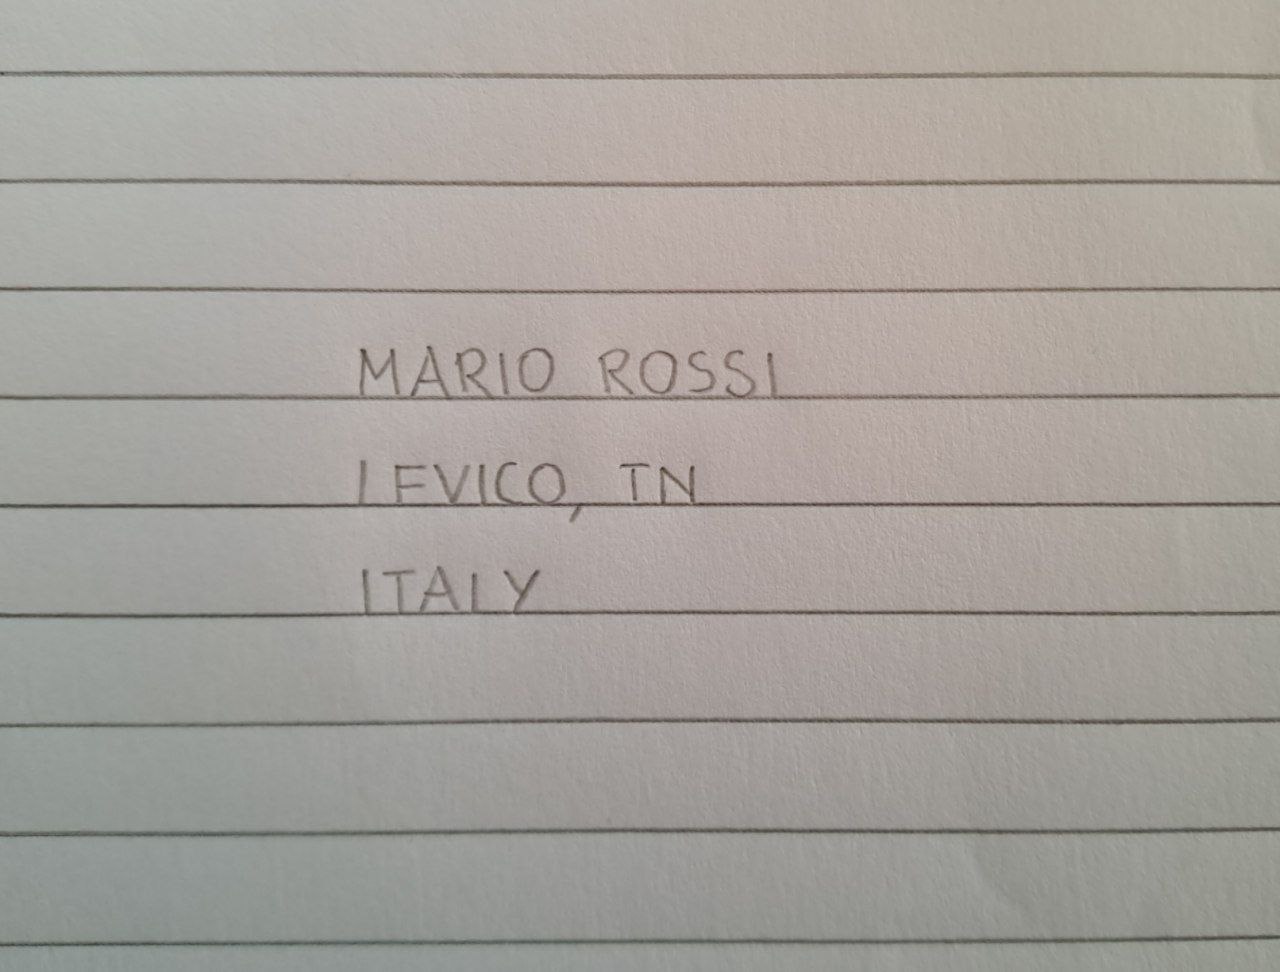 MARIO ROSSI
LEVICO, TN
ITALY